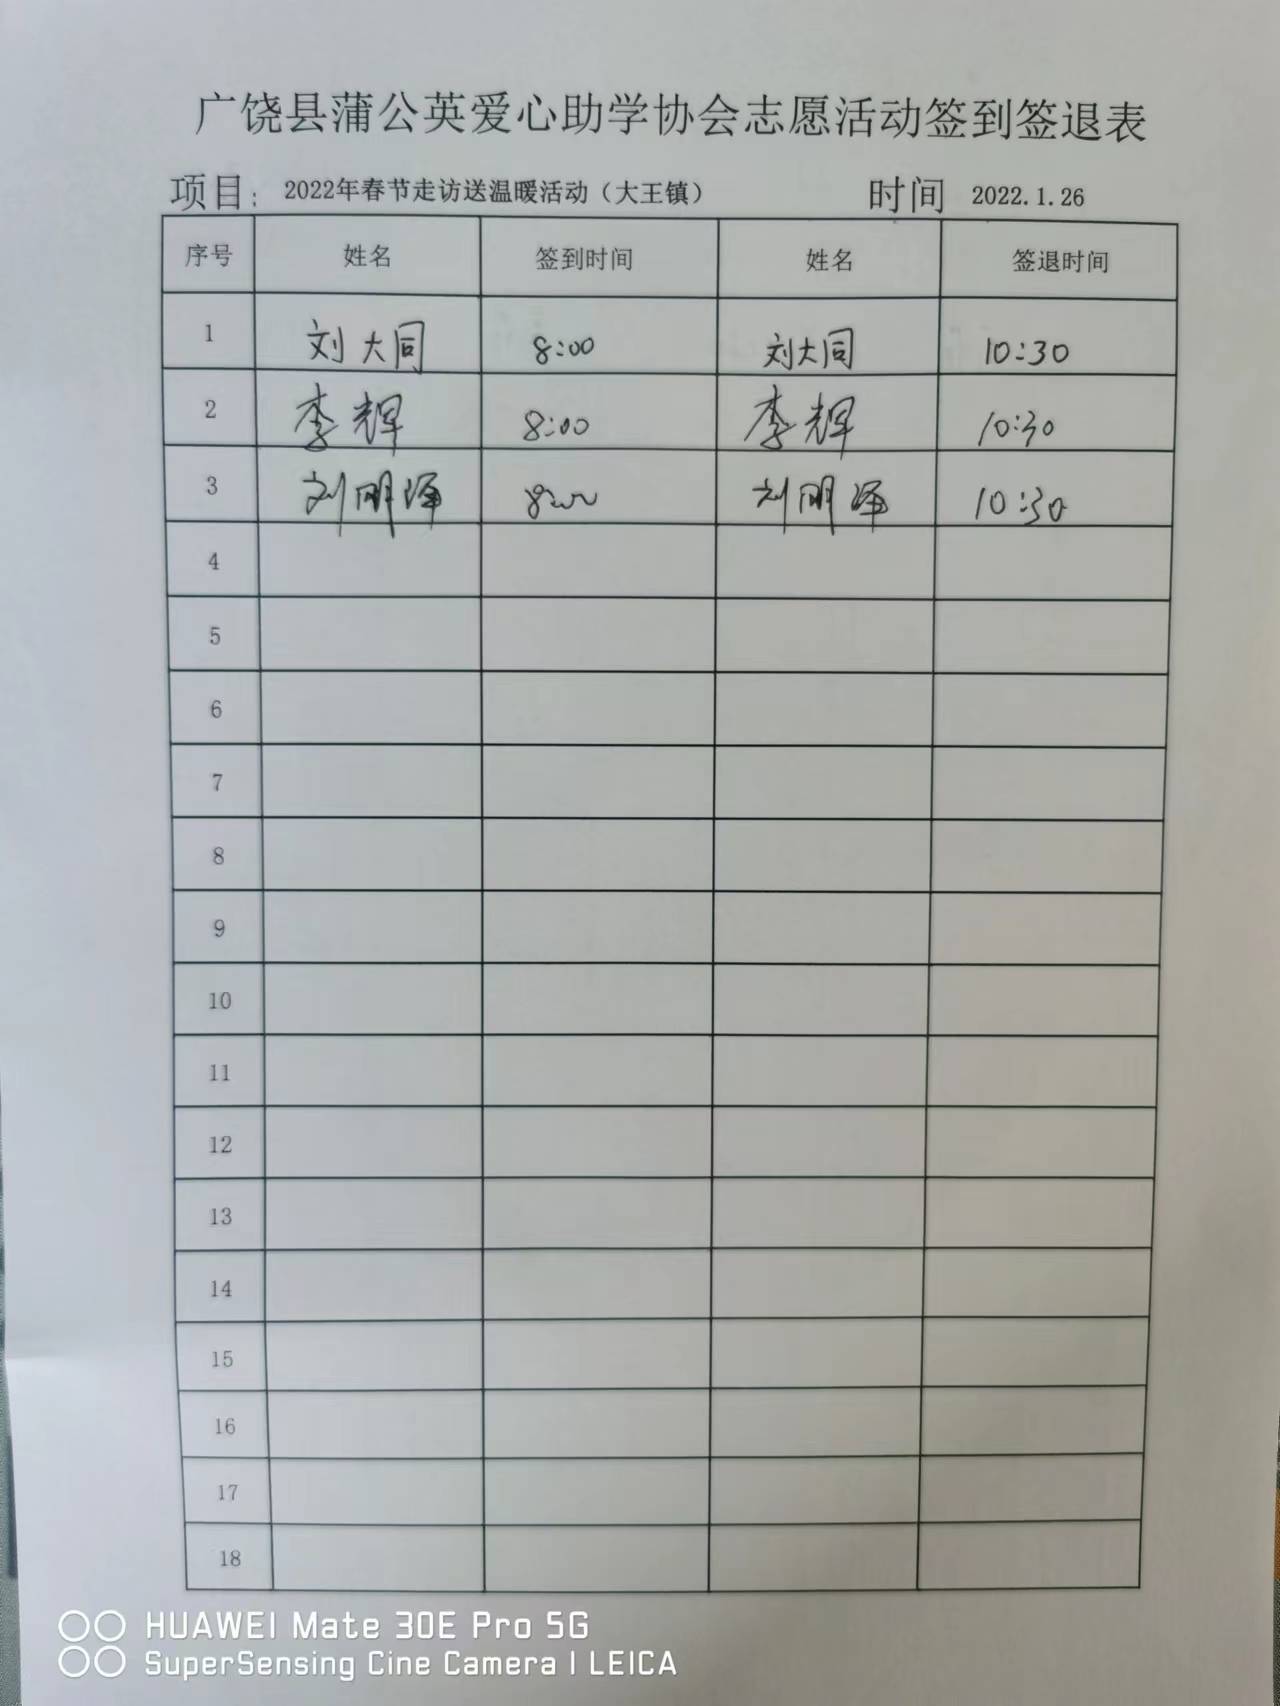 广饶县蒲公英爱心助学协会志愿活动签到签退表
项目: 2022年春节走访送温暖活动（大王镇） 时间 2022.1.26
序号 姓名 签到时间 姓名 签退时间
1 刘大同 8:00 刘大同 10:30
2 李辉 8:00 李辉 10:30
3 刘明泽 8:00 刘明泽 10:30
4
5
6
7
8
9
10
11
12
13
14
15
16
17
18
HUAWEI Mate 30E Pro 5G
SuperSensing Cine Camera | LEICA